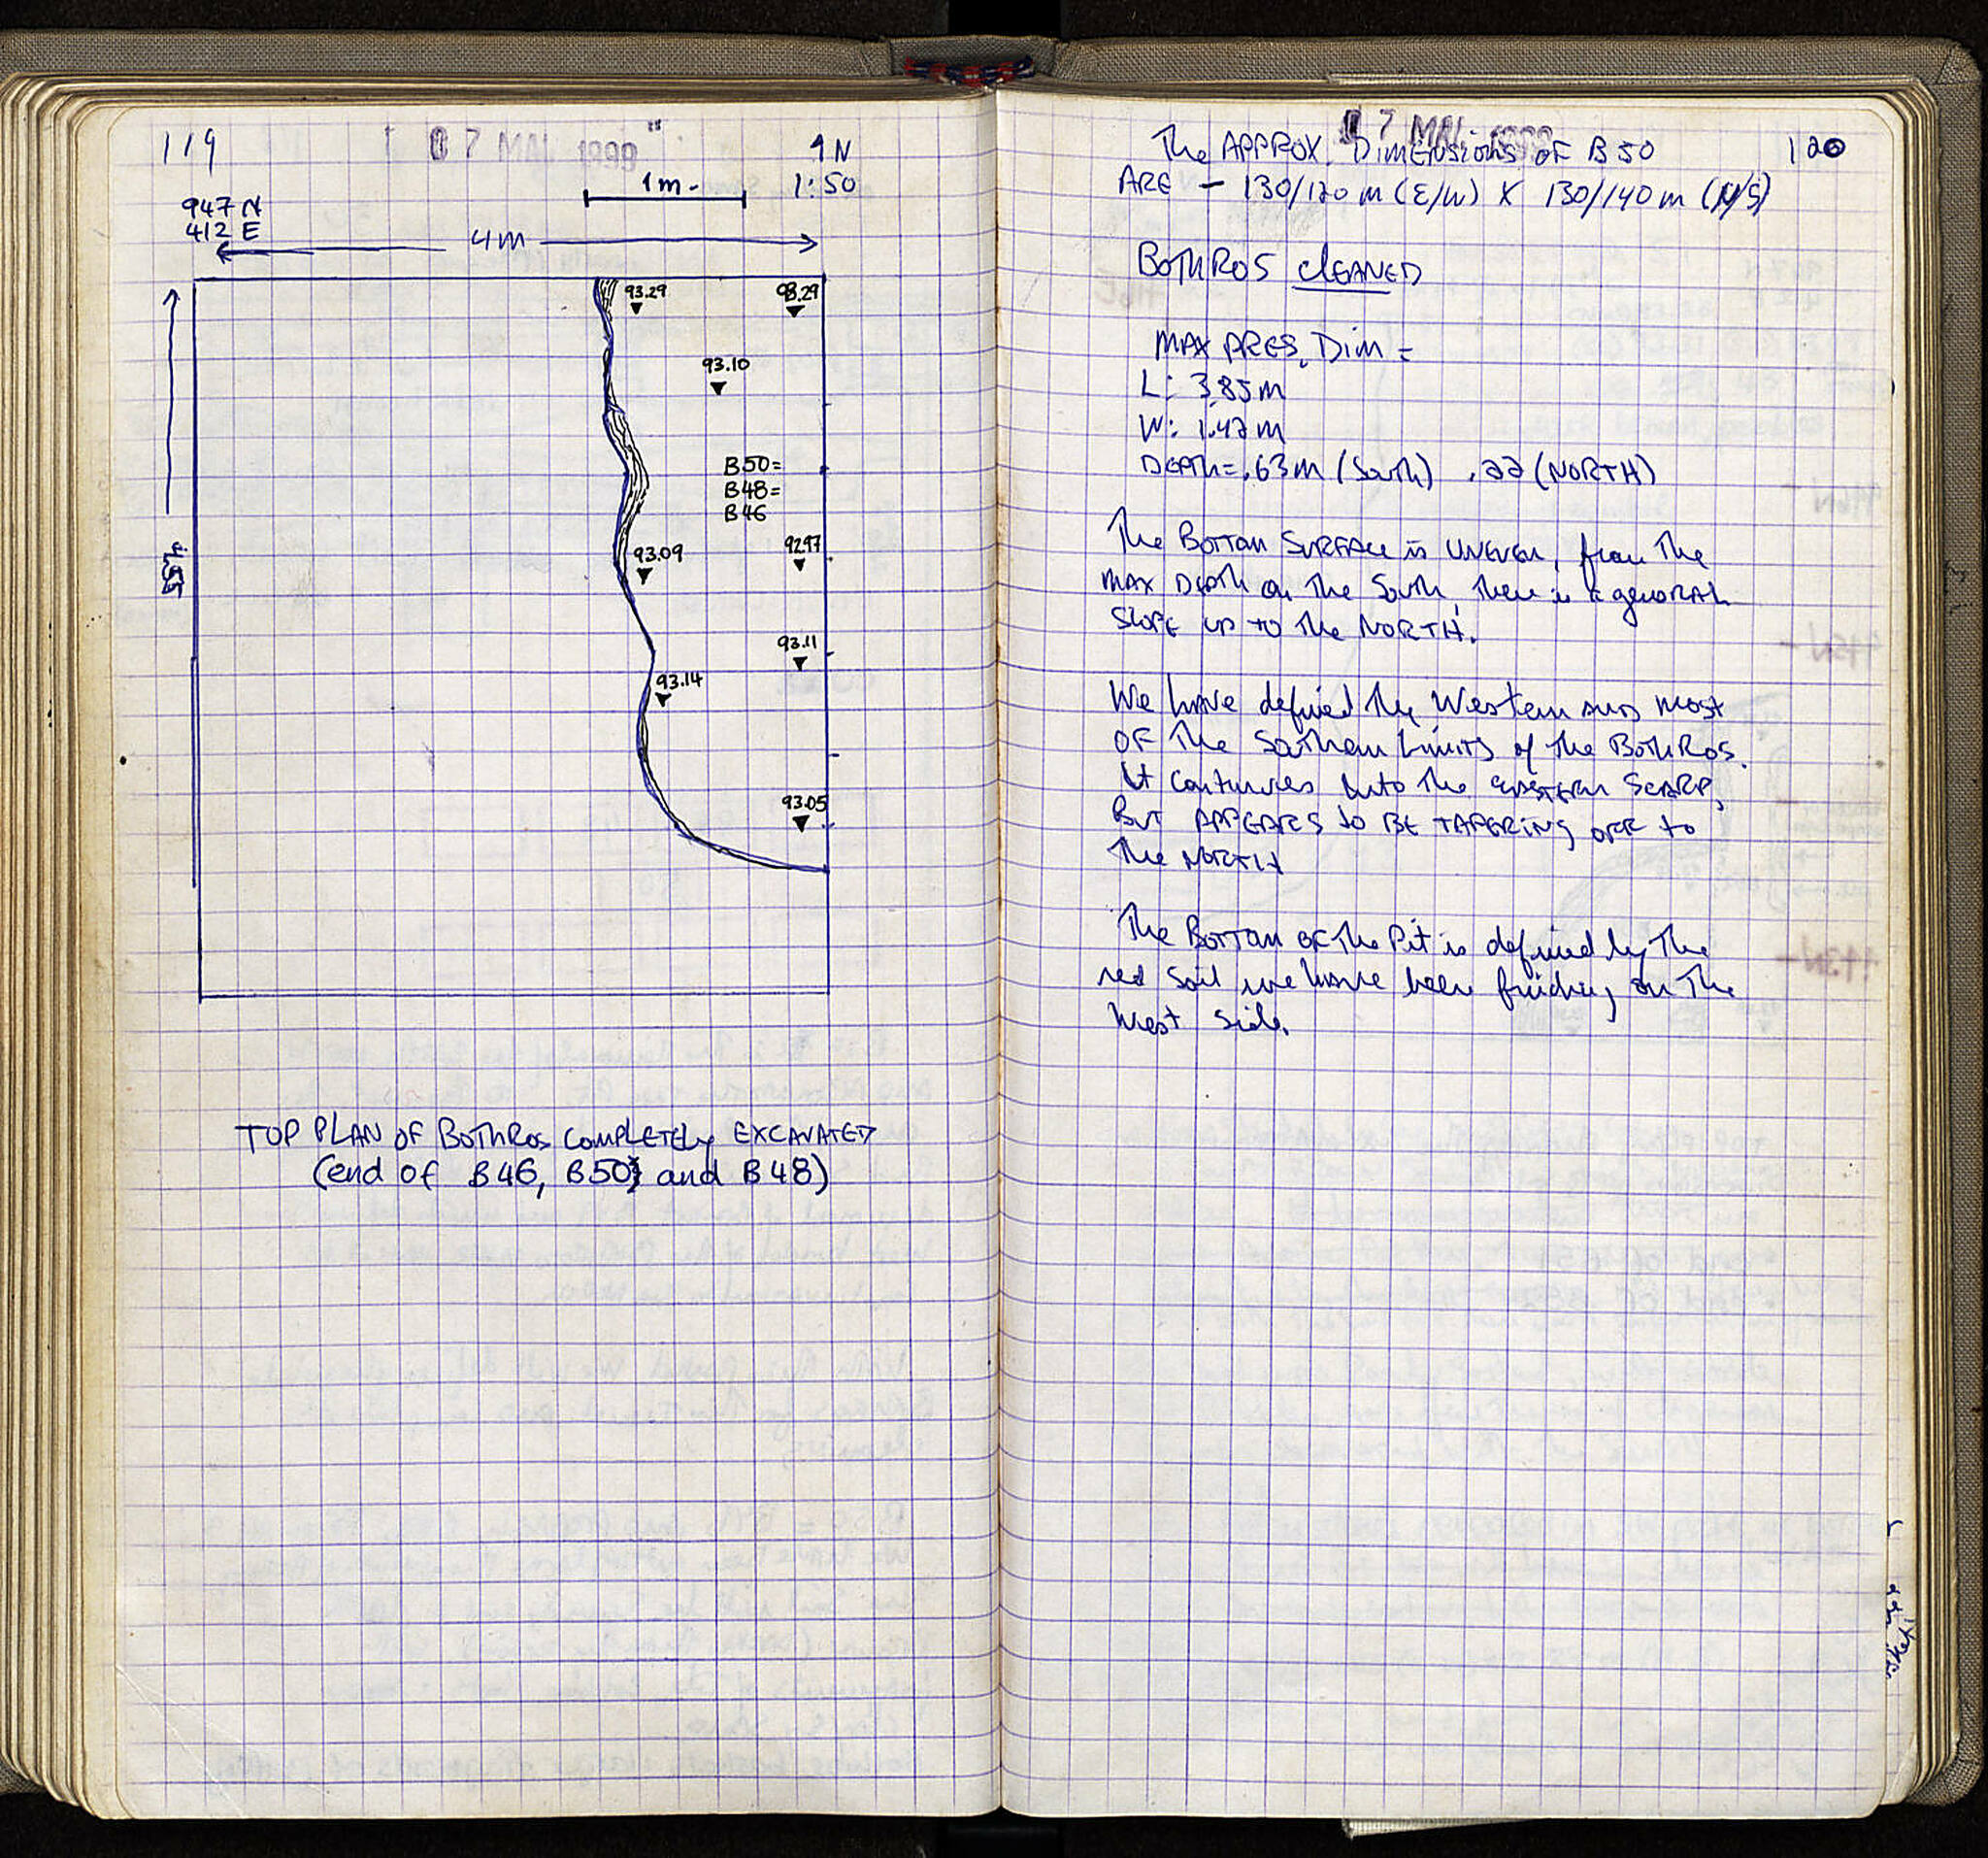 119
07 MAI 1999
↑N
1:50
1m.
947 N
412 E
4m
93.29
93.29
93.10
B50=
B48=
B46
4.55
93.09
92.97
93.11
93.14
93.05
TOP PLAN OF BOTHROS COMPLETELY EXCAVATED
(end of B46, B50, and B48)
07 MAI 1999
120
The APPROX. DIMENSIONS OF B50
ARE — 130/120 m (E/W) X 130/140 m (N/S)
BOTHROS CLEANED
MAX PRES. DIM =
L: 3.85m
W: 1.42m
DEPTH = .63m (South) .22 (NORTH)
The BOTTOM SURFACE is UNEVEN, from The
MAX DEPTH on The South, there is a general
SLOPE UP TO The NORTH.
We have defined The Western AND most
OF The Southern Limits of The BOTHROS.
It continues into The EASTERN SCARP,
BUT APPEARS to BE TAPERING OFF to
The NORTH
The BOTTOM OF The Pit is defined by The
red soil we have been finding on The
West side.